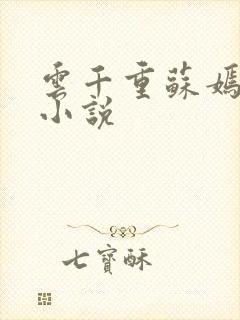 雲千重蘇嫣
小說
七寶酥